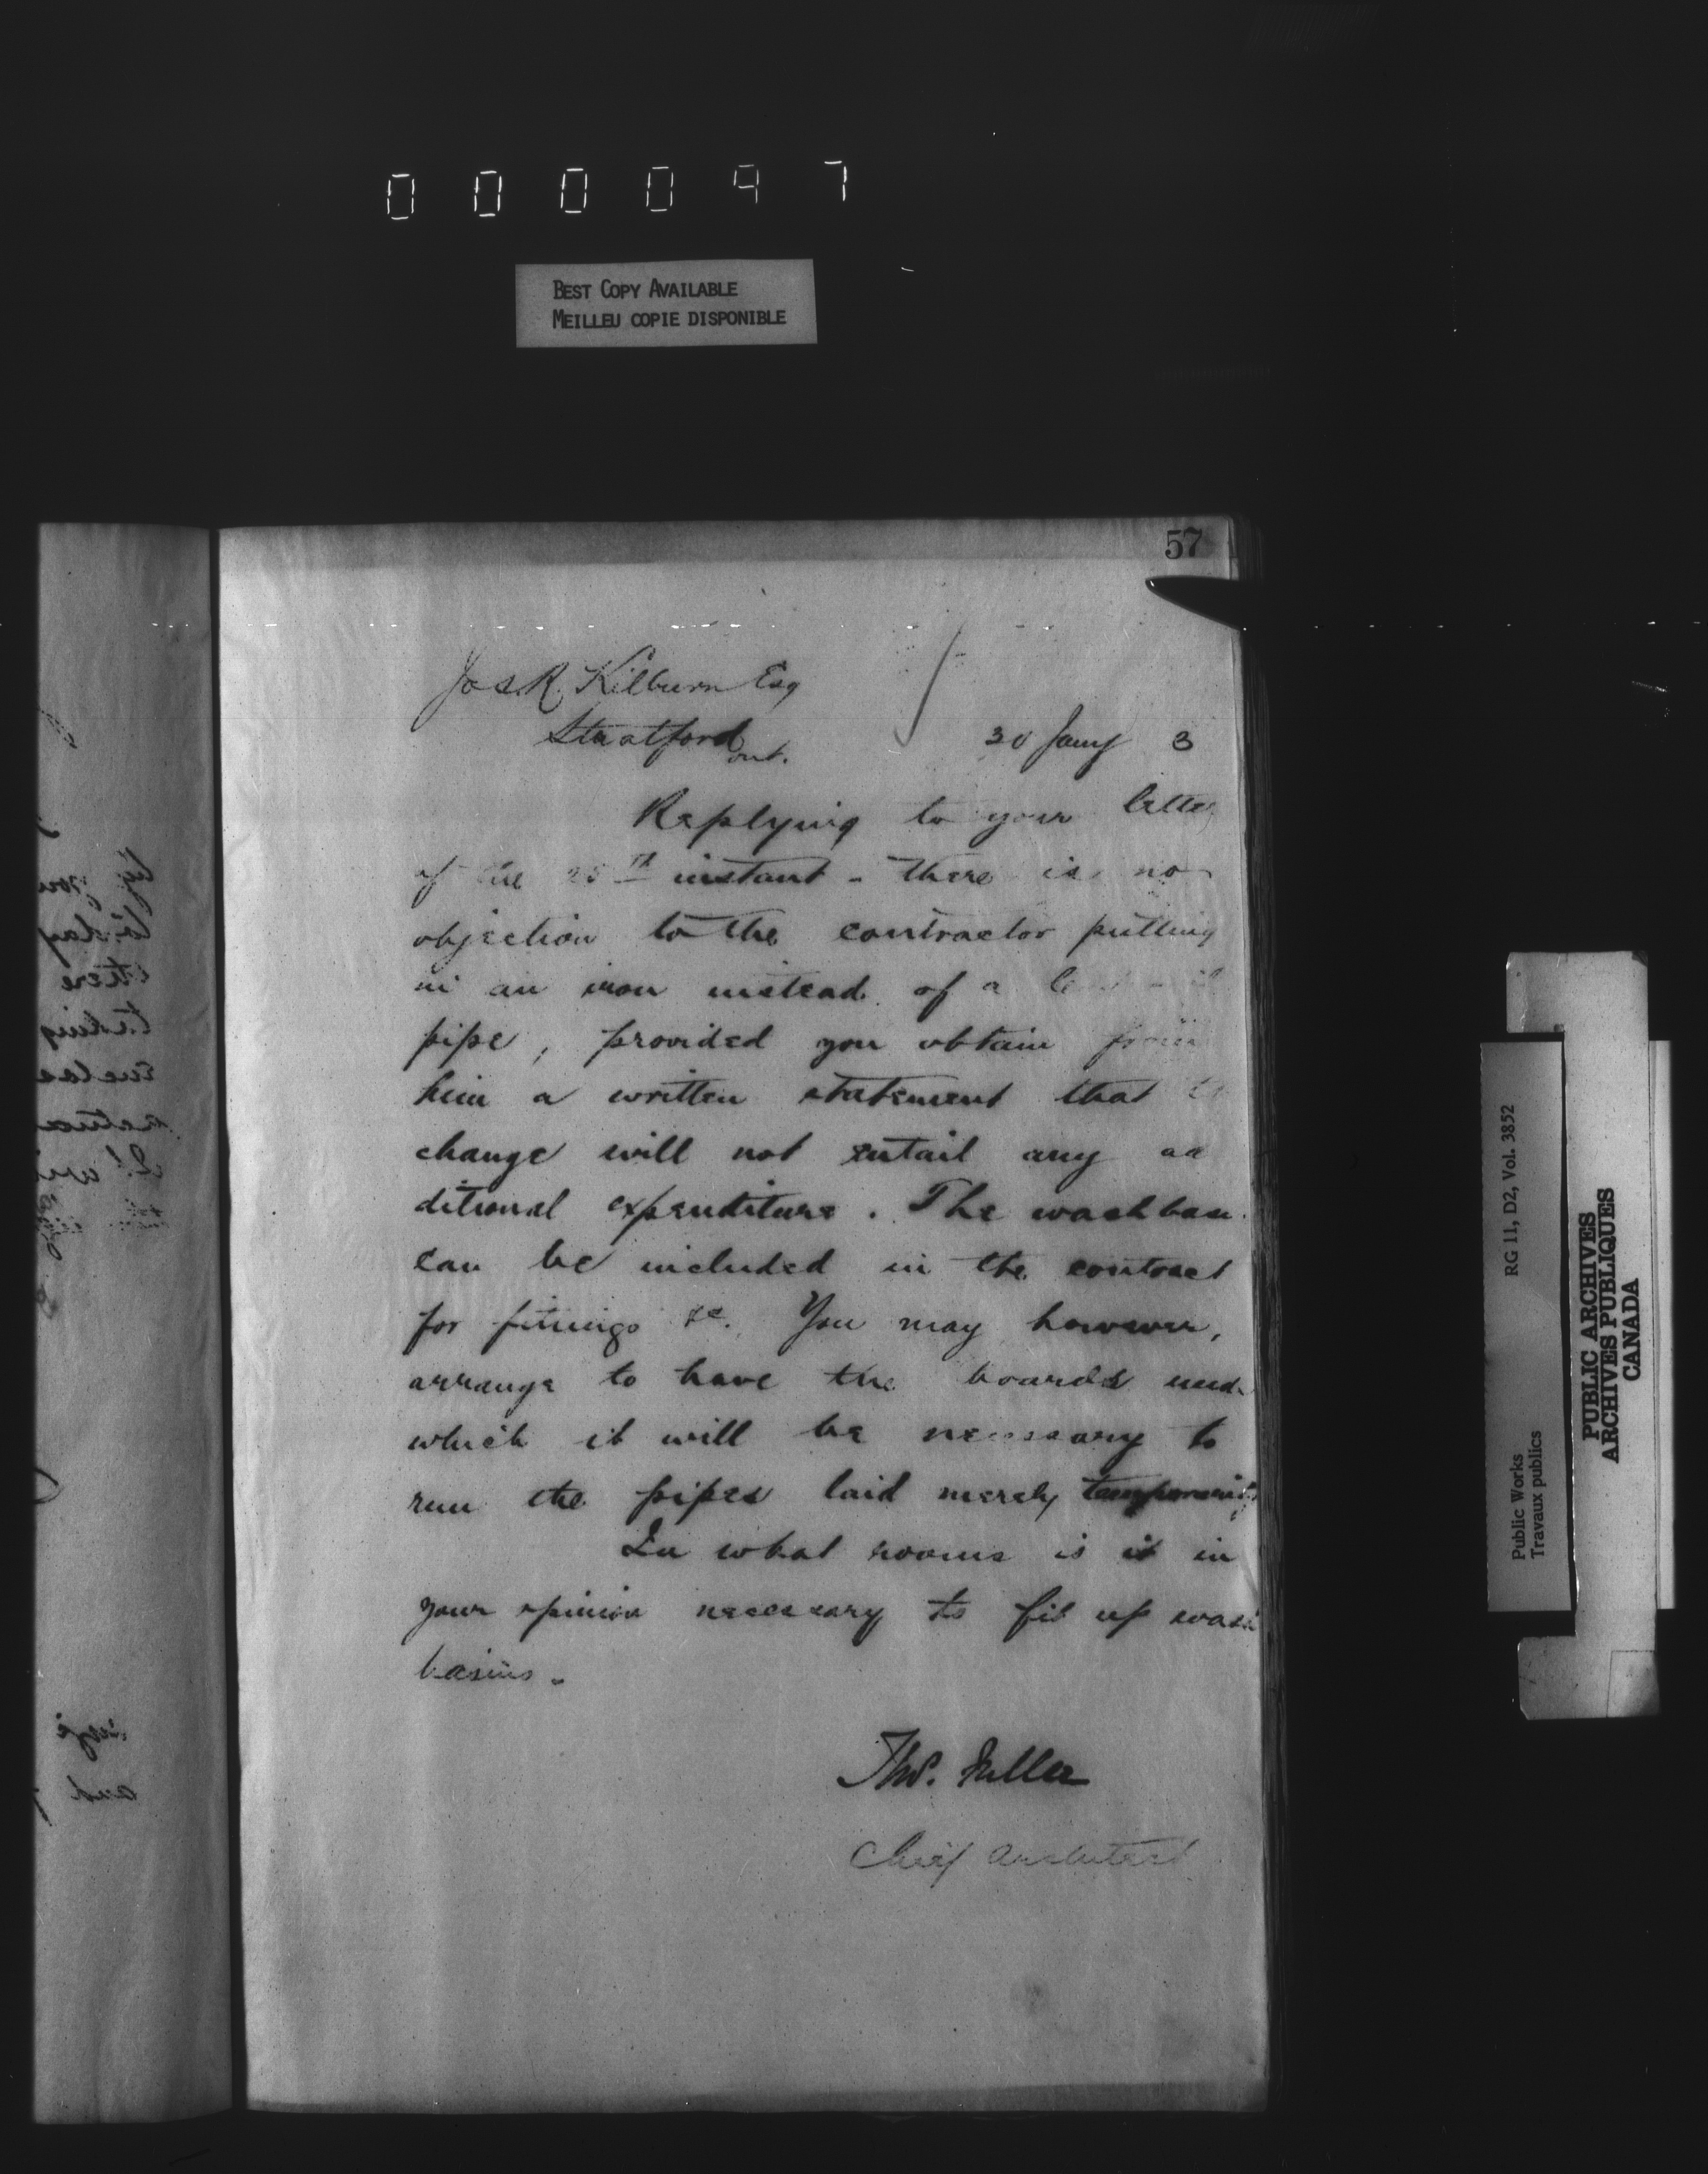 000097
BEST COPY AVAILABLE
MEILLEU COPIE DISPONIBLE
57
Jas R. Kilburn Esq
Stratford
ont.
30 Jany 3
Replying to your letter
of the 25th instant - there is no
objection to the contractor putting
in an iron instead of a
pipe, provided you obtain from
him a written statement that
change will not entail any ad
ditional expenditure. The washbasi
can be included in the contract
for fittings &c. You may however,
arrange to have the boards unde
which it will be necessary to
run the pipes laid merely temporarily
In what rooms is it in
your opinion necessary to fit up wash
basins.
Thos. Fuller
Chief Architect
Public Works
Travaux publics
RG 11, D2, Vol. 3852
PUBLIC ARCHIVES
ARCHIVES PUBLIQUES
CANADA